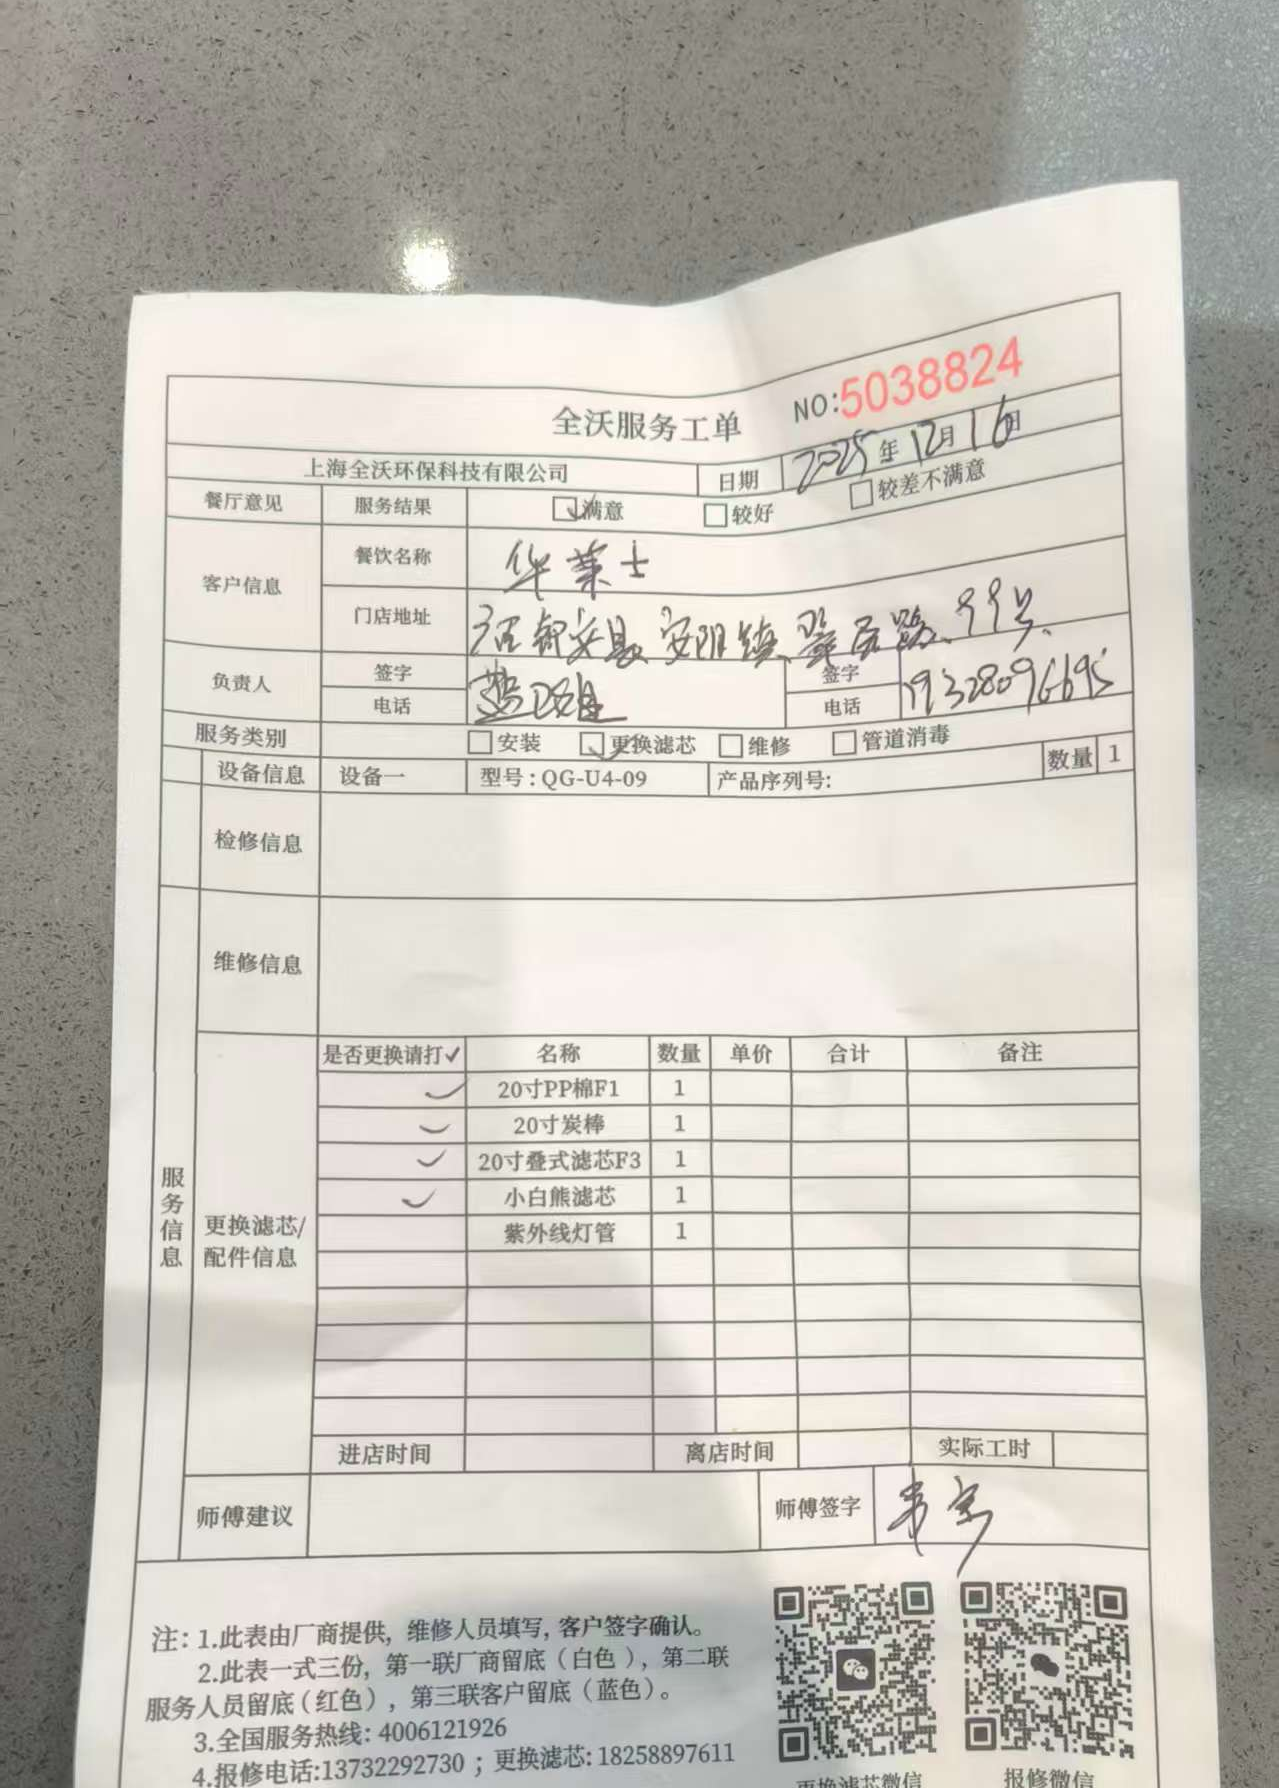 NO:5038824
全沃服务工单
上海全沃环保科技有限公司 日期 2025年12月16日
餐厅意见 服务结果 满意 较好 较差不满意
客户信息 餐饮名称 华莱士
门店地址 都安县安阳镇 99号
负责人 签字 签字
电话 电话 19328096695
服务类别 安装 更换滤芯 维修 管道消毒
设备信息 设备一 型号:QG-U4-09 产品序列号: 数量 1
检修信息
维修信息
服务信息
更换滤芯/配件信息
是否更换请打✓ 名称 数量 单价 合计 备注
✓ 20寸PP棉F1 1
✓ 20寸炭棒 1
✓ 20寸叠式滤芯F3 1
✓ 小白熊滤芯 1
紫外线灯管 1
进店时间 离店时间 实际工时
师傅建议 师傅签字 韦
注: 1.此表由厂商提供, 维修人员填写, 客户签字确认。
2.此表一式三份, 第一联厂商留底(白色), 第二联
服务人员留底(红色), 第三联客户留底(蓝色)。
3.全国服务热线: 4006121926
4.报修电话:13732292730 ; 更换滤芯: 18258897611
更换滤芯微信 报修微信